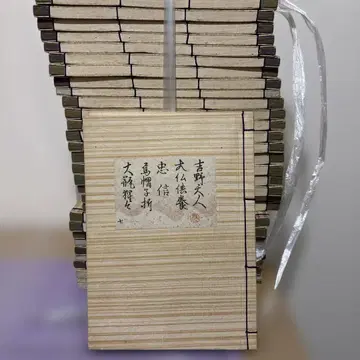 吉野天人
大仏供養
忠信
烏帽子折
大瓶猩々
七